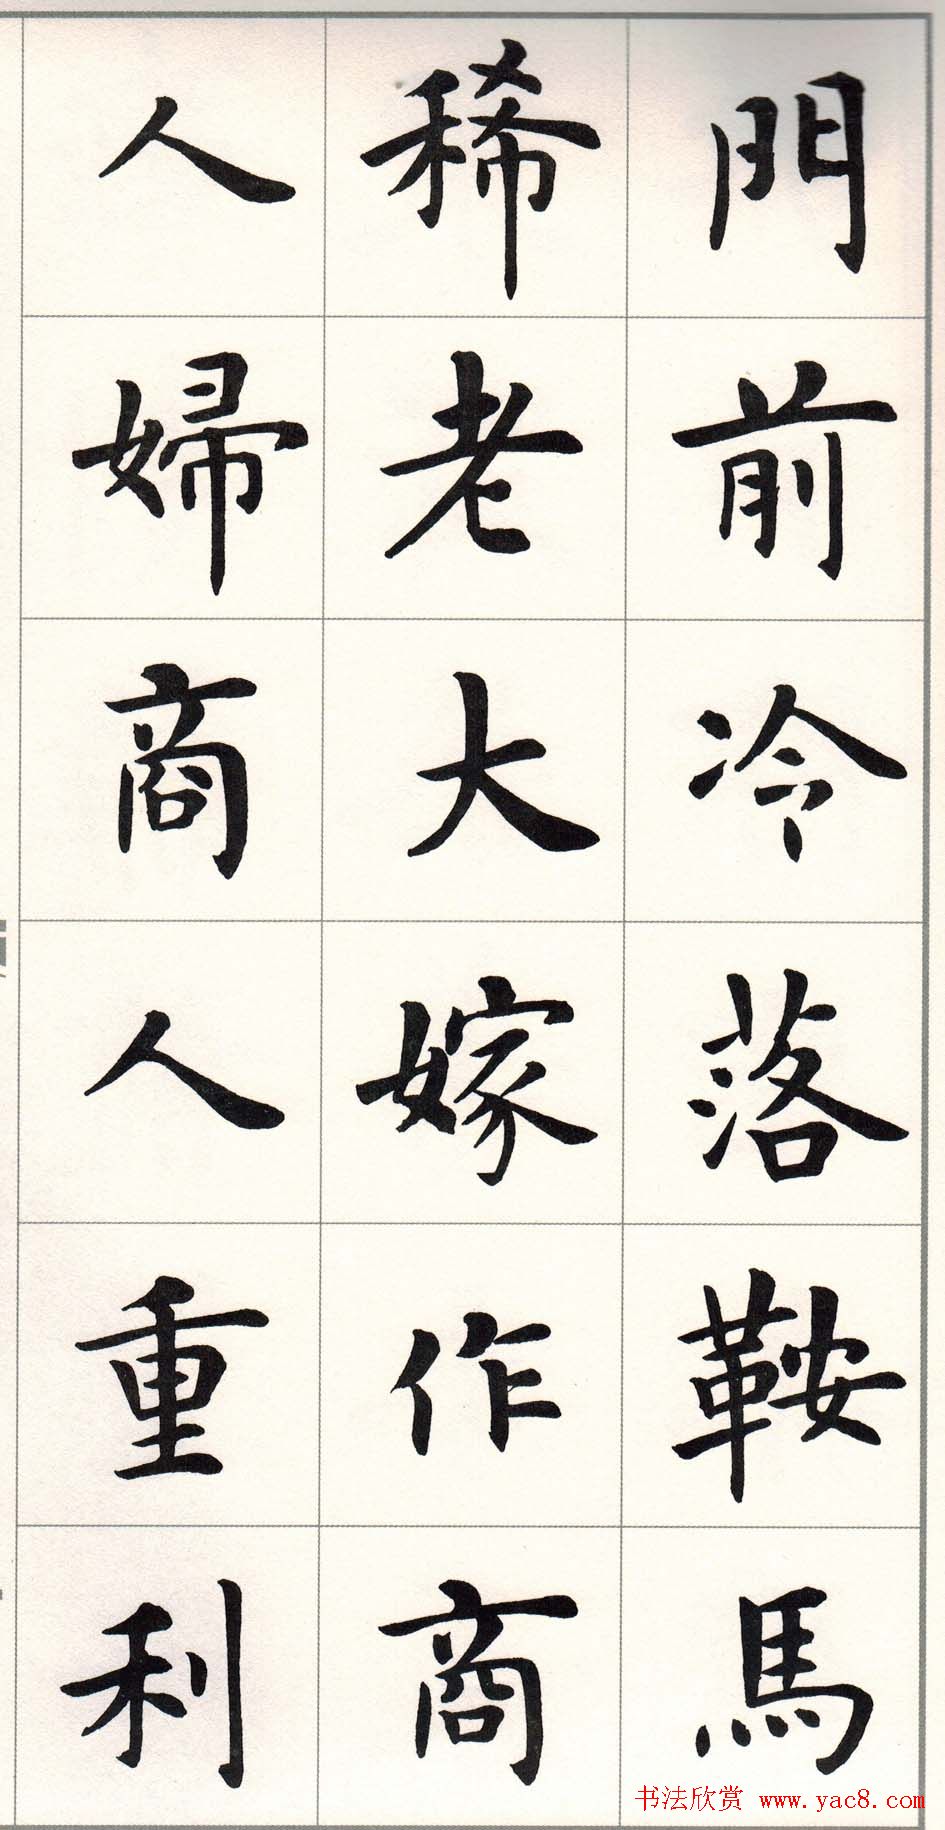 門前冷落鞍馬
稀老大嫁作商
人婦商人重利
书法欣赏 www.yac8.com